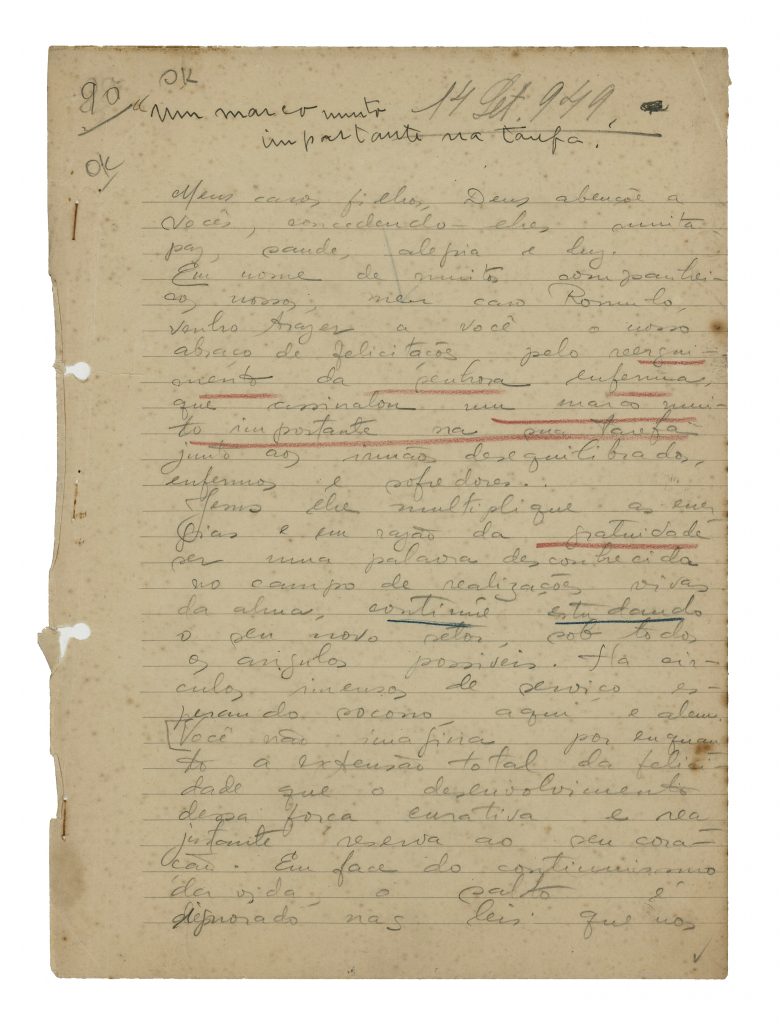 OK
90 "Um marco muito 14 Set. 949.
importante na tarefa."
OK
Meus caros filhos, Deus abençôe a
vocês, concedendo-lhes muita
paz, saude, alegria e luz.
Em nome de muitos companhei-
ros nossos, meu caro Romulo,
venho trazer a você o nosso
abraço de felicitações pelo reergui-
mento da senhora enferma,
que assinalou um marco mui-
to importante na sua tarefa
junto aos irmãos desequilibrados,
enfermos e sofredores.
Jesus lhe multiplique as ener-
gias e em razão da gratuidade
ser uma palavra desconhecida
no campo de realizações vivas
da alma, continúe estudando
o seu novo setor, sob todos
os angulos possiveis. Ha cir-
culos imensos de serviço es-
perando socorro, aqui e alem.
Você não imagina por enquan-
to a extensão total da felici-
dade que o desenvolvimento
dessa força curativa e rea-
justante reserva ao seu cora-
ção. Em face do continuismo
da vida, o salto é
ignorado nas leis que nos